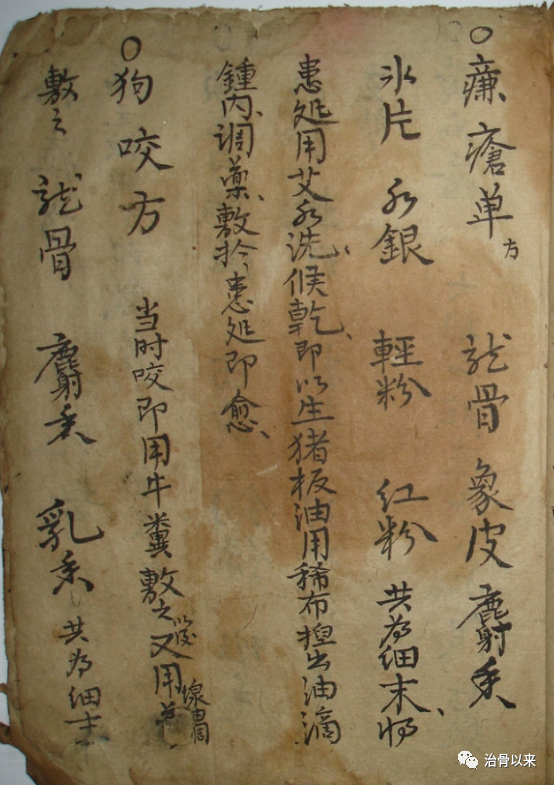 ○㾾瘡单方 龍骨 象皮 麝香
氷片 水銀 輕粉 红粉 共为细末、将
患処用艾水洗、候乾、即以生猪板油用稀布揑出油滴
鍾内、调藥、敷於患処即愈、
○狗咬方 当时咬即用牛糞敷之 又用
敷之 龍骨 麝香 乳香 共为细末
治骨以来